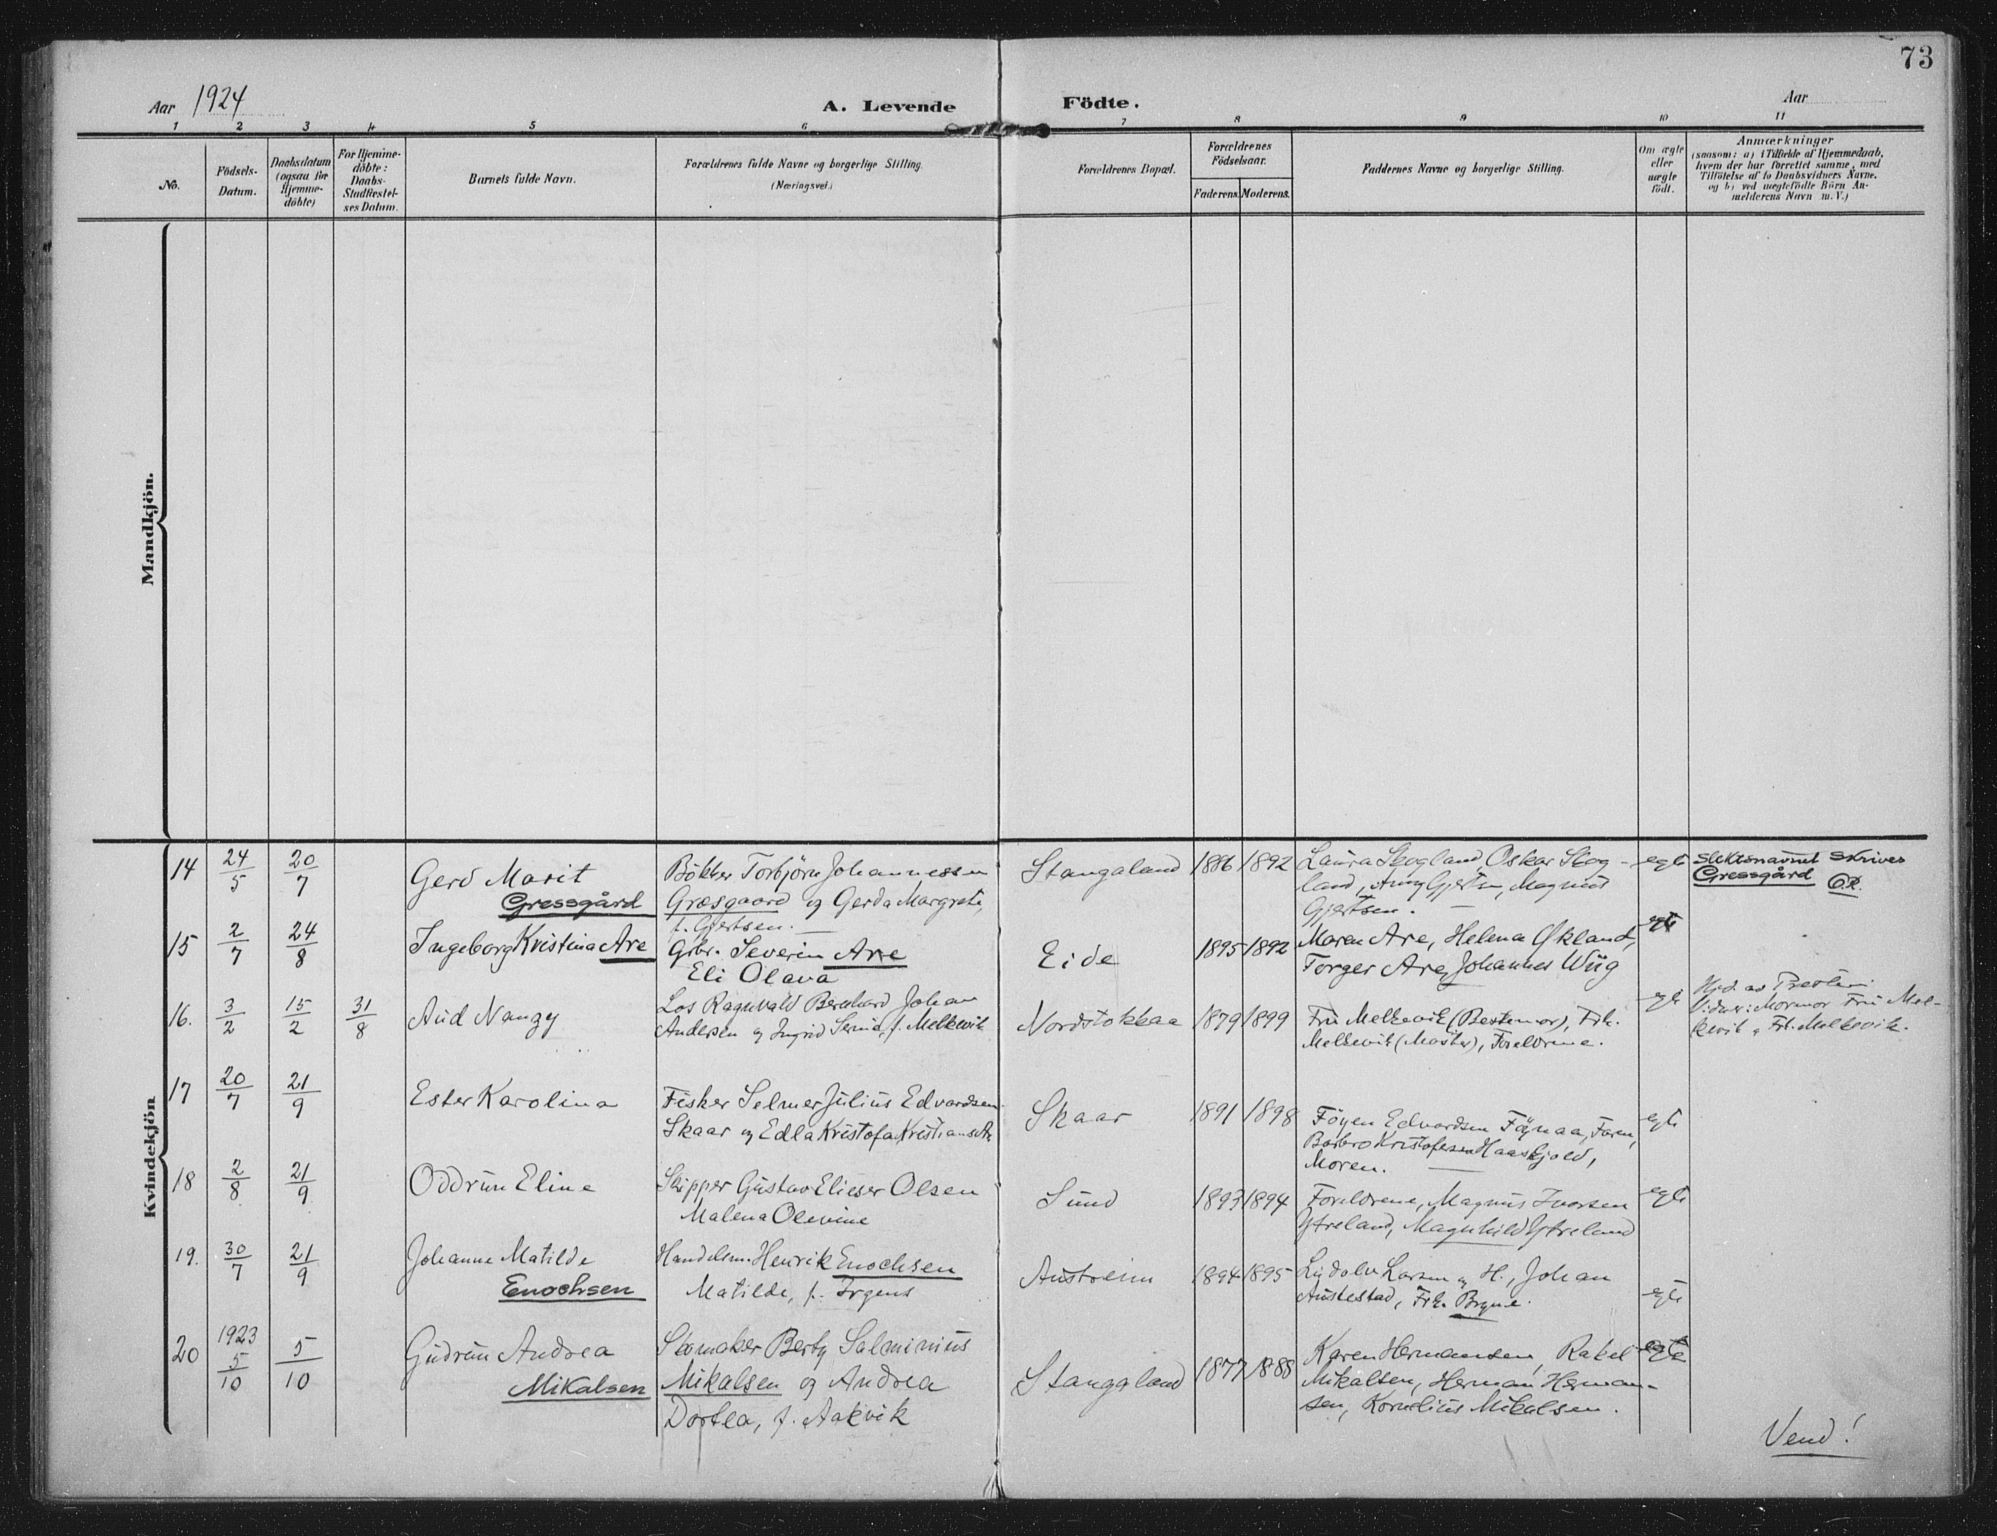 73
Aar 1924
A. Levende Födte.
Aar
1 2 3 4 5 6 7 8 9 10 11
No.
Födsels-
Datum.
Daabsdatum
(ogsaa for
Hjemme-
döbte)
For Hjemme-
döbte:
Daabs-
Stadfestel-
ses Datum.
Barnets fulde Navn.
Forældrenes fulde Navne og borgerlige Stilling.
(Næringsvei.)
Forældrenes Bopæl.
Forældrenes
Födselsaar.
Faderens. Moderens.
Faddernes Navne og borgerlige Stilling.
Om ægte
eller
uægte
födt.
Anmærkninger
(saasom: a) i Tilfælde af Hjemmedaab,
hvem der har forrettet samme, med
Tilföielse af to Daabsvidners Navne.
og b) ved uægtefödte Börn An-
melderens Navn m. V.)
Mandkjön.
Kvindekjön
14 24/5 20/7
Gerd Marit
Gressgård
Bökker Torbjörn Johannessen
Græsgaard og Gerda Margrete,
f. Gjertsen.
Stangaland 1886 1892
Laura Skogland, Oskar Skog-
land, Amy Gjertsen, Magnus
Gjertsen.
egte
Slektsnavnet skrives
Gressgård
15 2/7 24/8
Ingeborg Kristina Are
Gbr. Severin Are
Eli Olava
Eide 1895 1892
Maren Are, Helena Økland,
Torger Are, Johannes Wiig
egte
16. 3/2 15/2 31/8
Aud Nanzy
Los Ragnvald Bernhard Johan
Andersen og Ingrid f. Melkevik
Nordstokkaa 1879 1899
Fru Melkevik (Bestemor), Frk.
Melkevik (Moster), Foreldrene.
egte
Hjd. av Presten
Vidner: Mormor Fru Mel-
kevik og Frk. Melkevik.
17 20/7 21/9
Ester Karolina
Fisker Selmer Julius Edvardsen
Skaar og Edla Kristofa Kristiansdr.
Skaar 1891 1898
Föyen Edvardsen Föynaa, Faren,
Barbro Kristofersen Haaskjold,
Moren.
egte
18 2/8 21/9
Oddrun Eline
Skipper Gustav Elieser Olsen
Malena Olevine
Sund 1893 1894
Foreldrene, Magnus Ivarsen
Ytreland, Magnhild Ytreland
egte
19. 30/7 21/9
Johanne Matilde
Enochsen
Handelsm. Henrik Enochsen
Matilde, f. Irgens
Austreim 1894 1895
Lydolv Larsen og H., Johan
Austestad, Frk. Bryne.
egte
20 1923 5/10 5/10
Gudrun Andrea
Mikalsen
Skomaker Berty Salminius
Mikalsen og Andrea
Dortea, f. Aakvik
Stangaland 1877 1888
Karen Hermansen, Rakel
Mikalsen, Herman Herman-
sen, Kornelius Mikalsen.
egte
Vend!